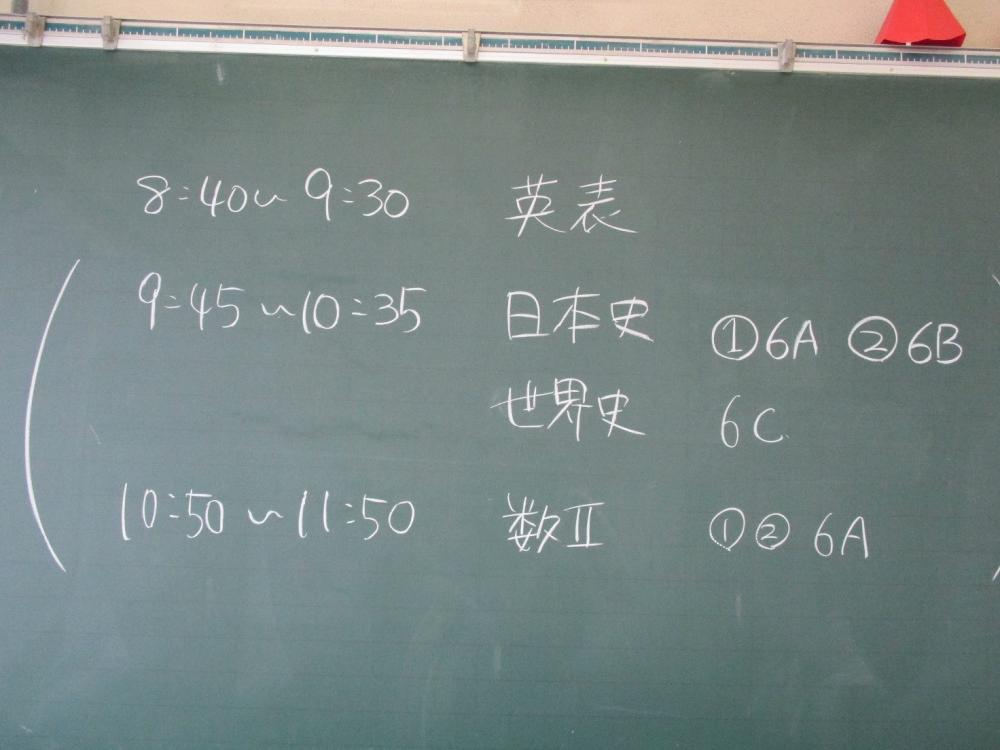 8:40〜9:30 英表
9:45〜10:35 日本史 ①6A ②6B
世界史 6C
10:50〜11:50 数Ⅱ ①② 6A